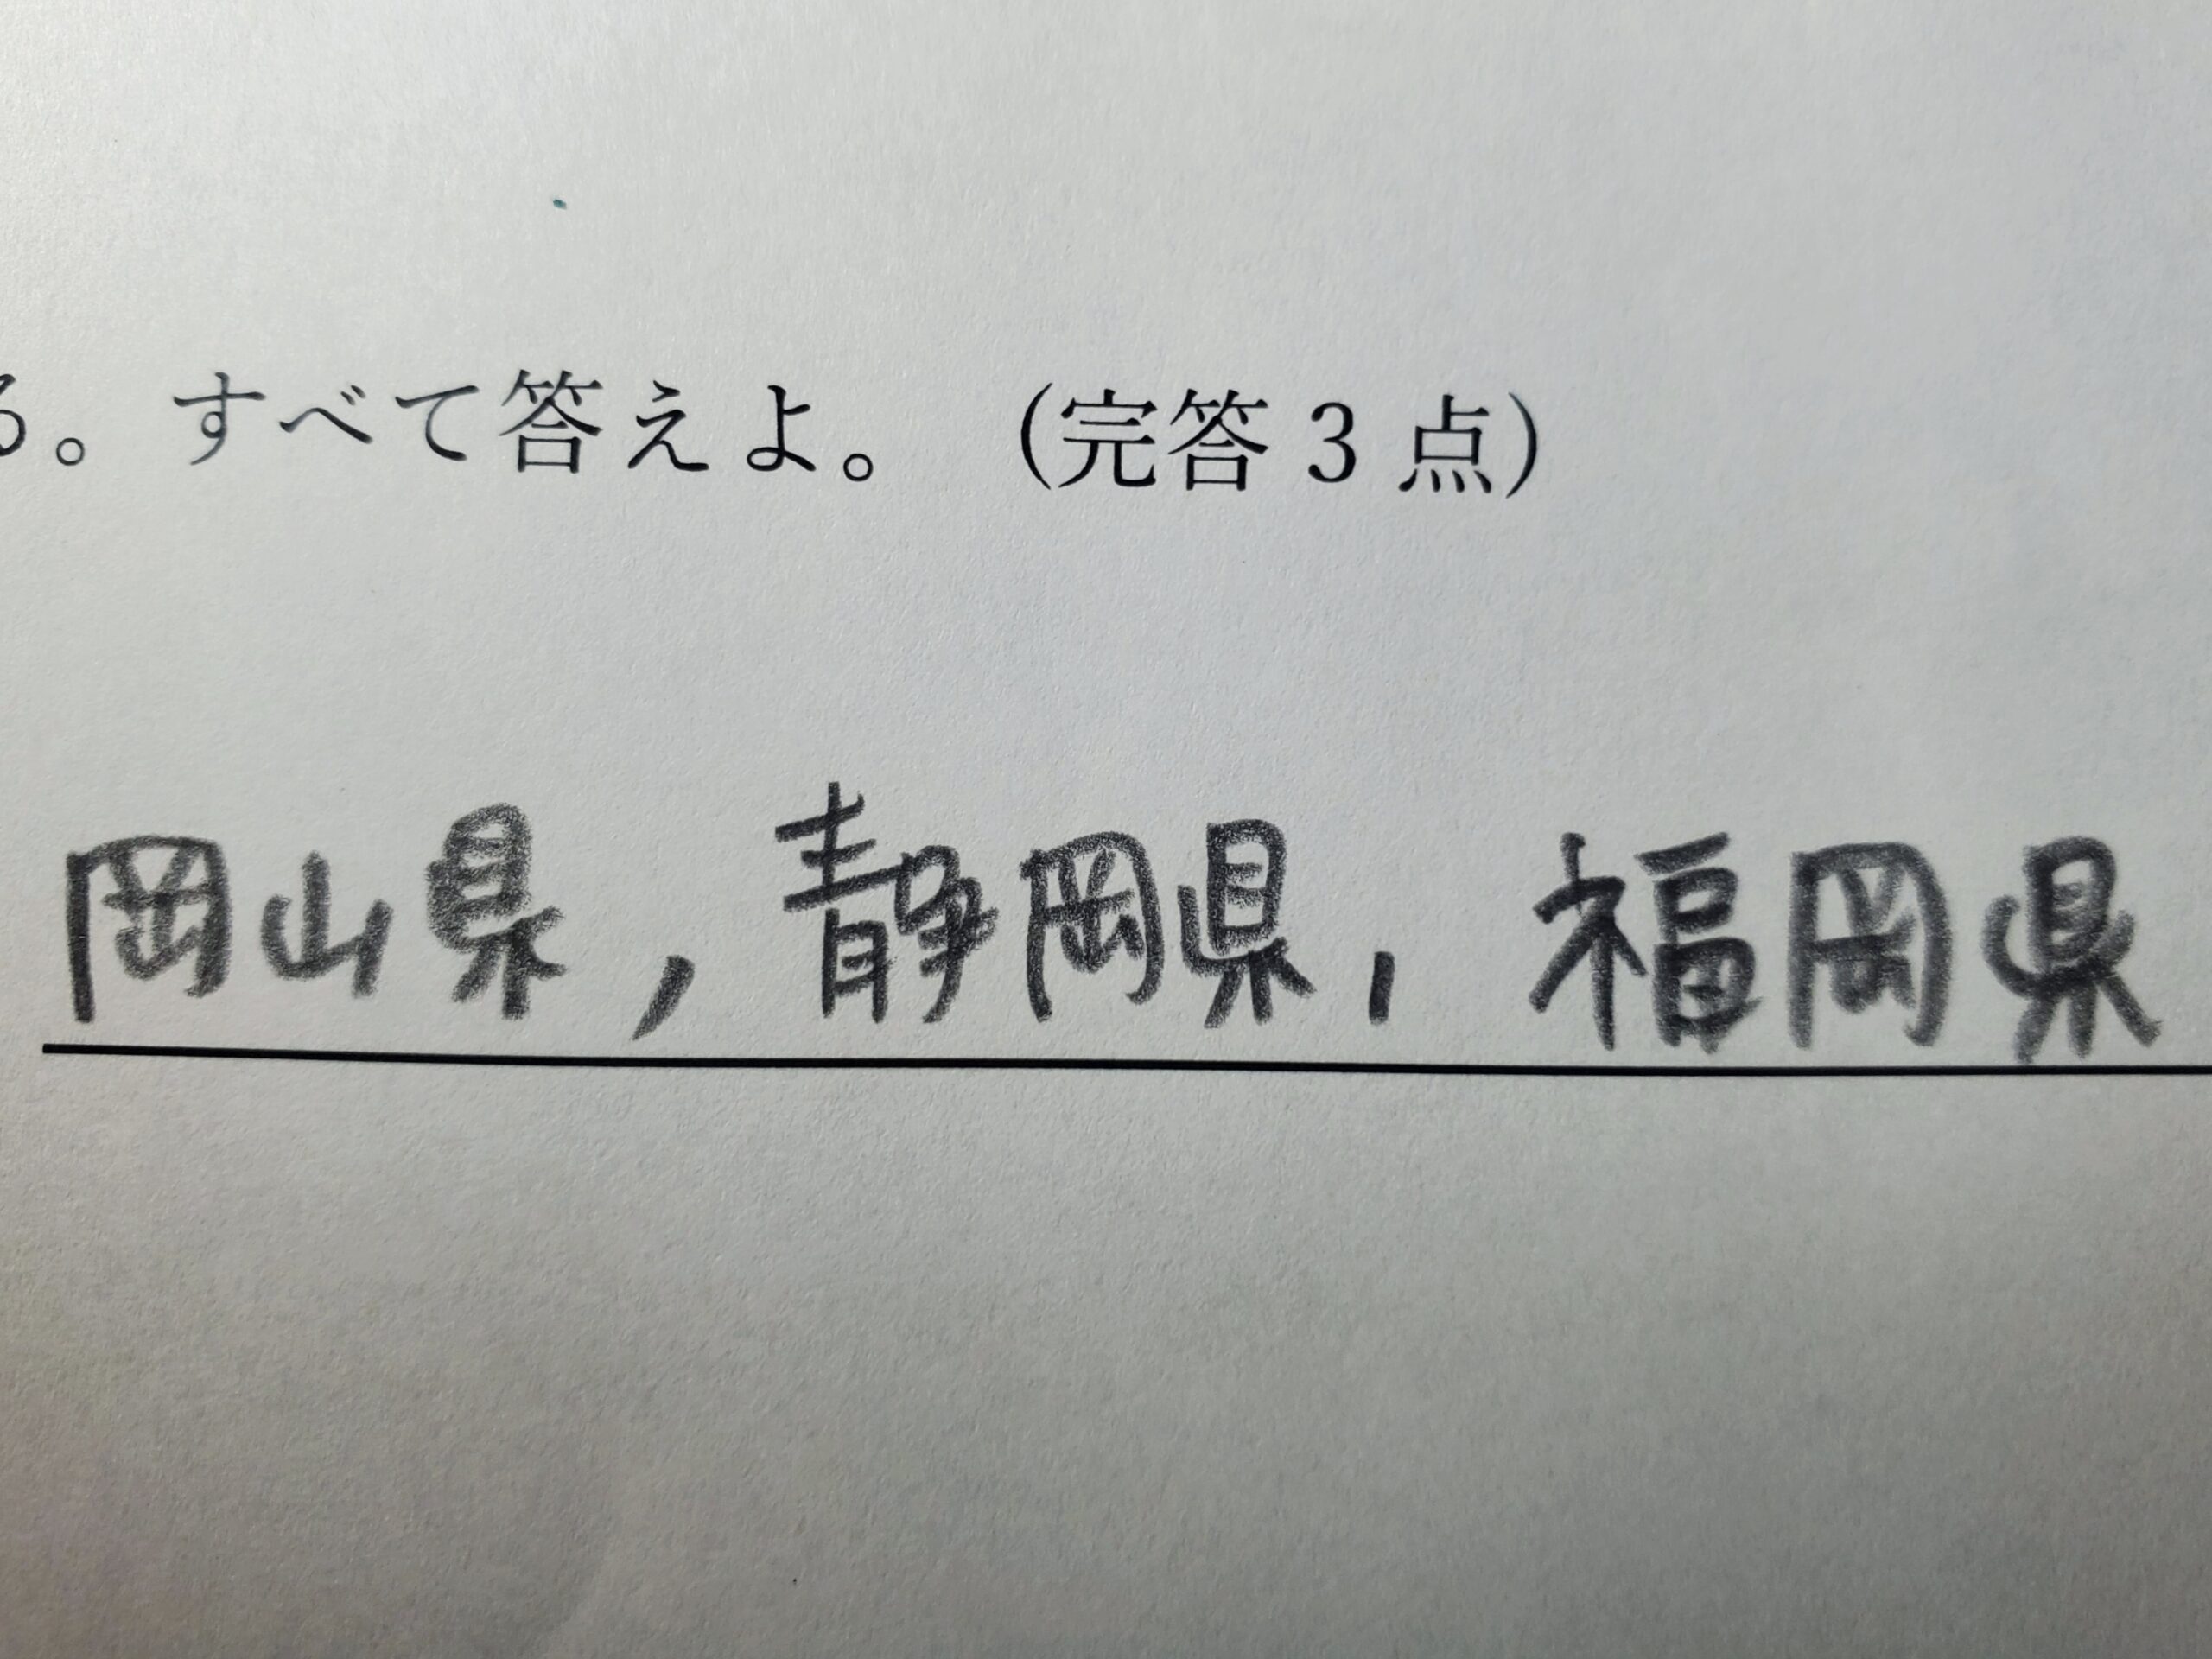 る。すべて答えよ。 (完答3点)
岡山県, 静岡県, 福岡県